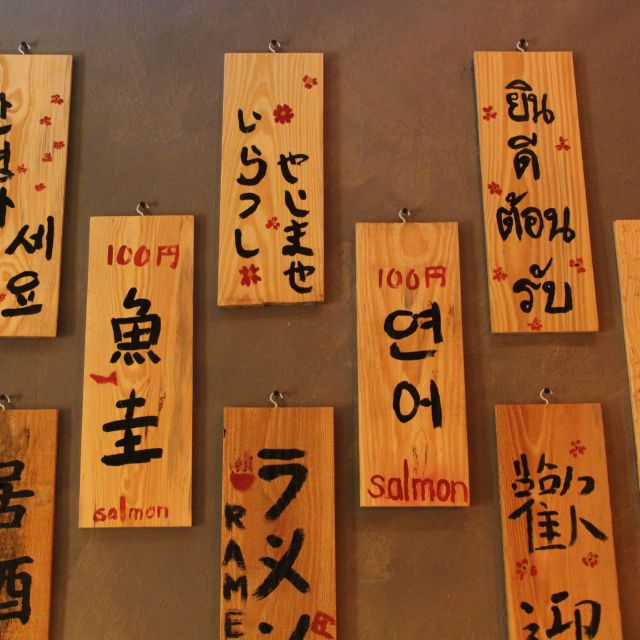 안녕하
세요
いらっし
やいませ
ยิน
ดี
ต้อน
รับ
100円
魚圭
salmon
100円
연어
salmon
居酒
RAME
ラメン
円
歡迎